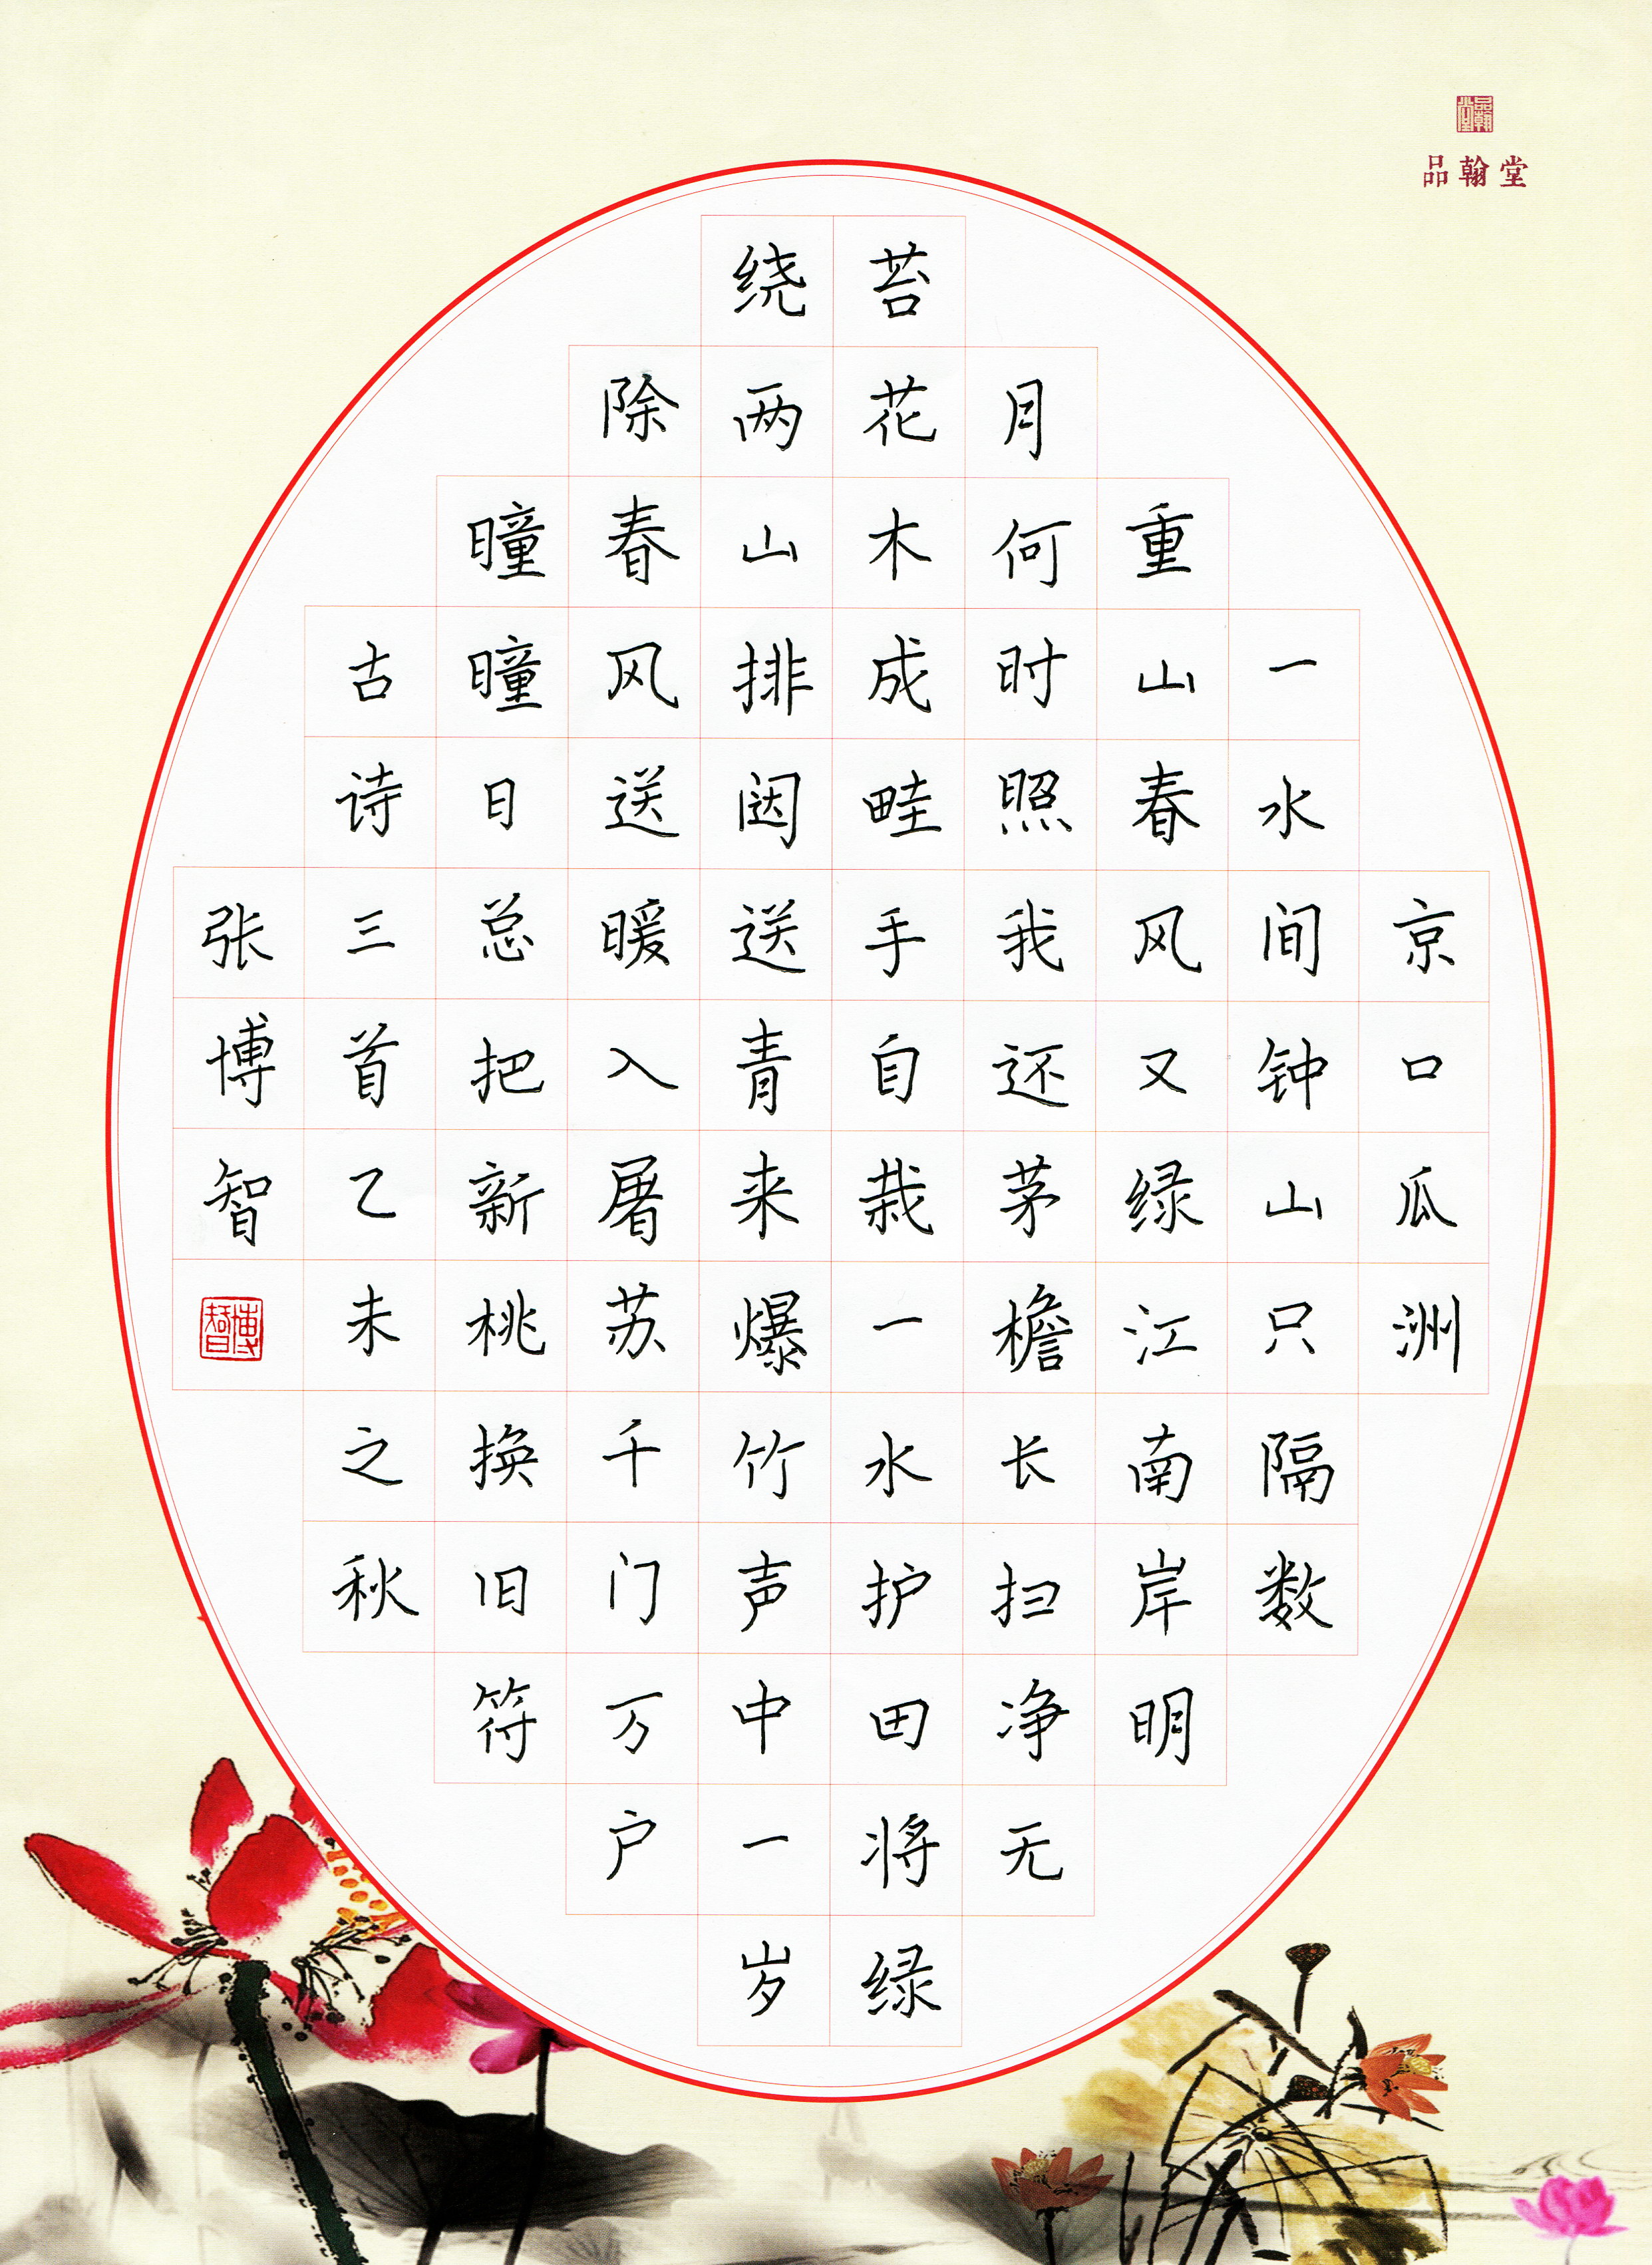 品翰堂
品翰堂
京口瓜洲
一水间钟山只隔数
重山春风又绿江南岸明
月何时照我还茅檐长扫净无
苔花木成畦手自栽一水护田将绿
绕两山排闼送青来爆竹声中一岁
除春风送暖入屠苏千门万户
曈曈日总把新桃换旧符
古诗三首乙未之秋
张博智
博智